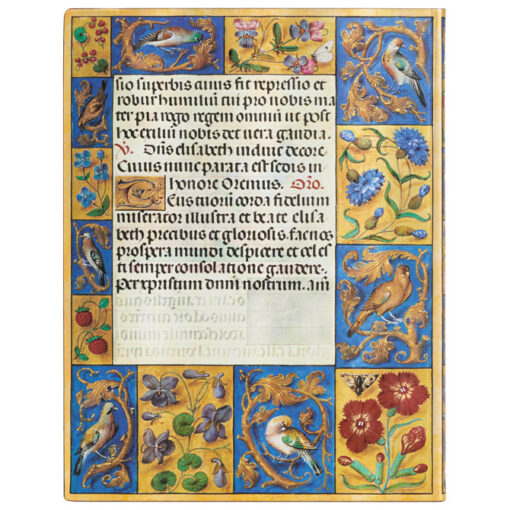 sio superbis cuius fit repressio et
robur humiliũ tui pro nobis ma
ter pia rogo regem omniũ ut post
hoc exiliũ nobis det vera gaudia.
V. Dñs elisabeth induit decore.
Cuius nunc parata est sedis in
honore Oremus. Oro.
Tuorum corda fidelium
miserator illustra et beate elisa
beth precibus et gloriosis. fac nos
prospera mundi despicere et celes
ti semper consolatione gaudere.
Per xpristum dñm nostrum. am̃